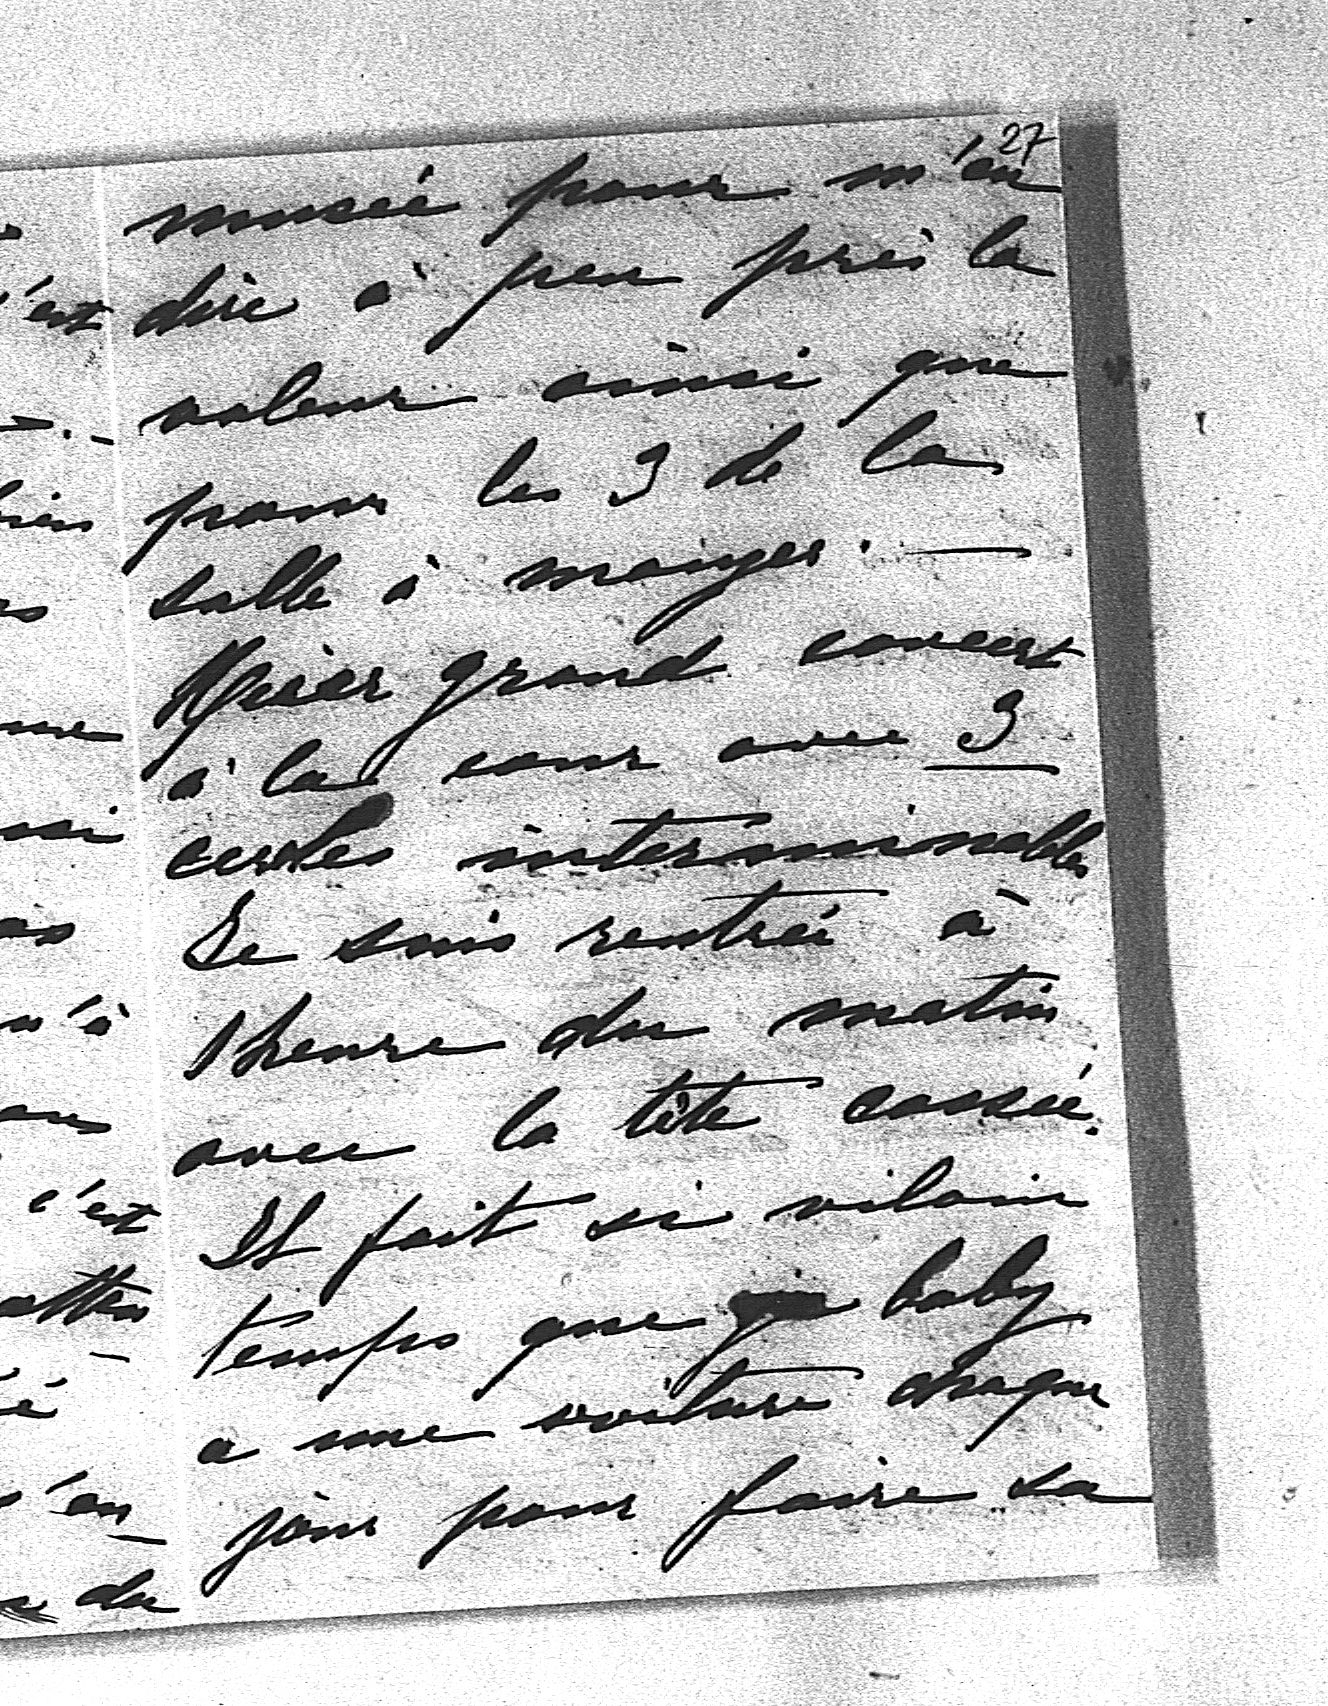 27
musée pour m'en
dire à peu près la
valeur ainsi que
pour les 3 de la
salle à manger. —
Hier grand concert
à la cour avec 3
cercles interminables
Je suis rentrée à
1 heure du matin
avec la tête cassée.
Il fait si vilain
temps que baby
a une voiture chaque
jour pour faire sa
'est
c'est
du